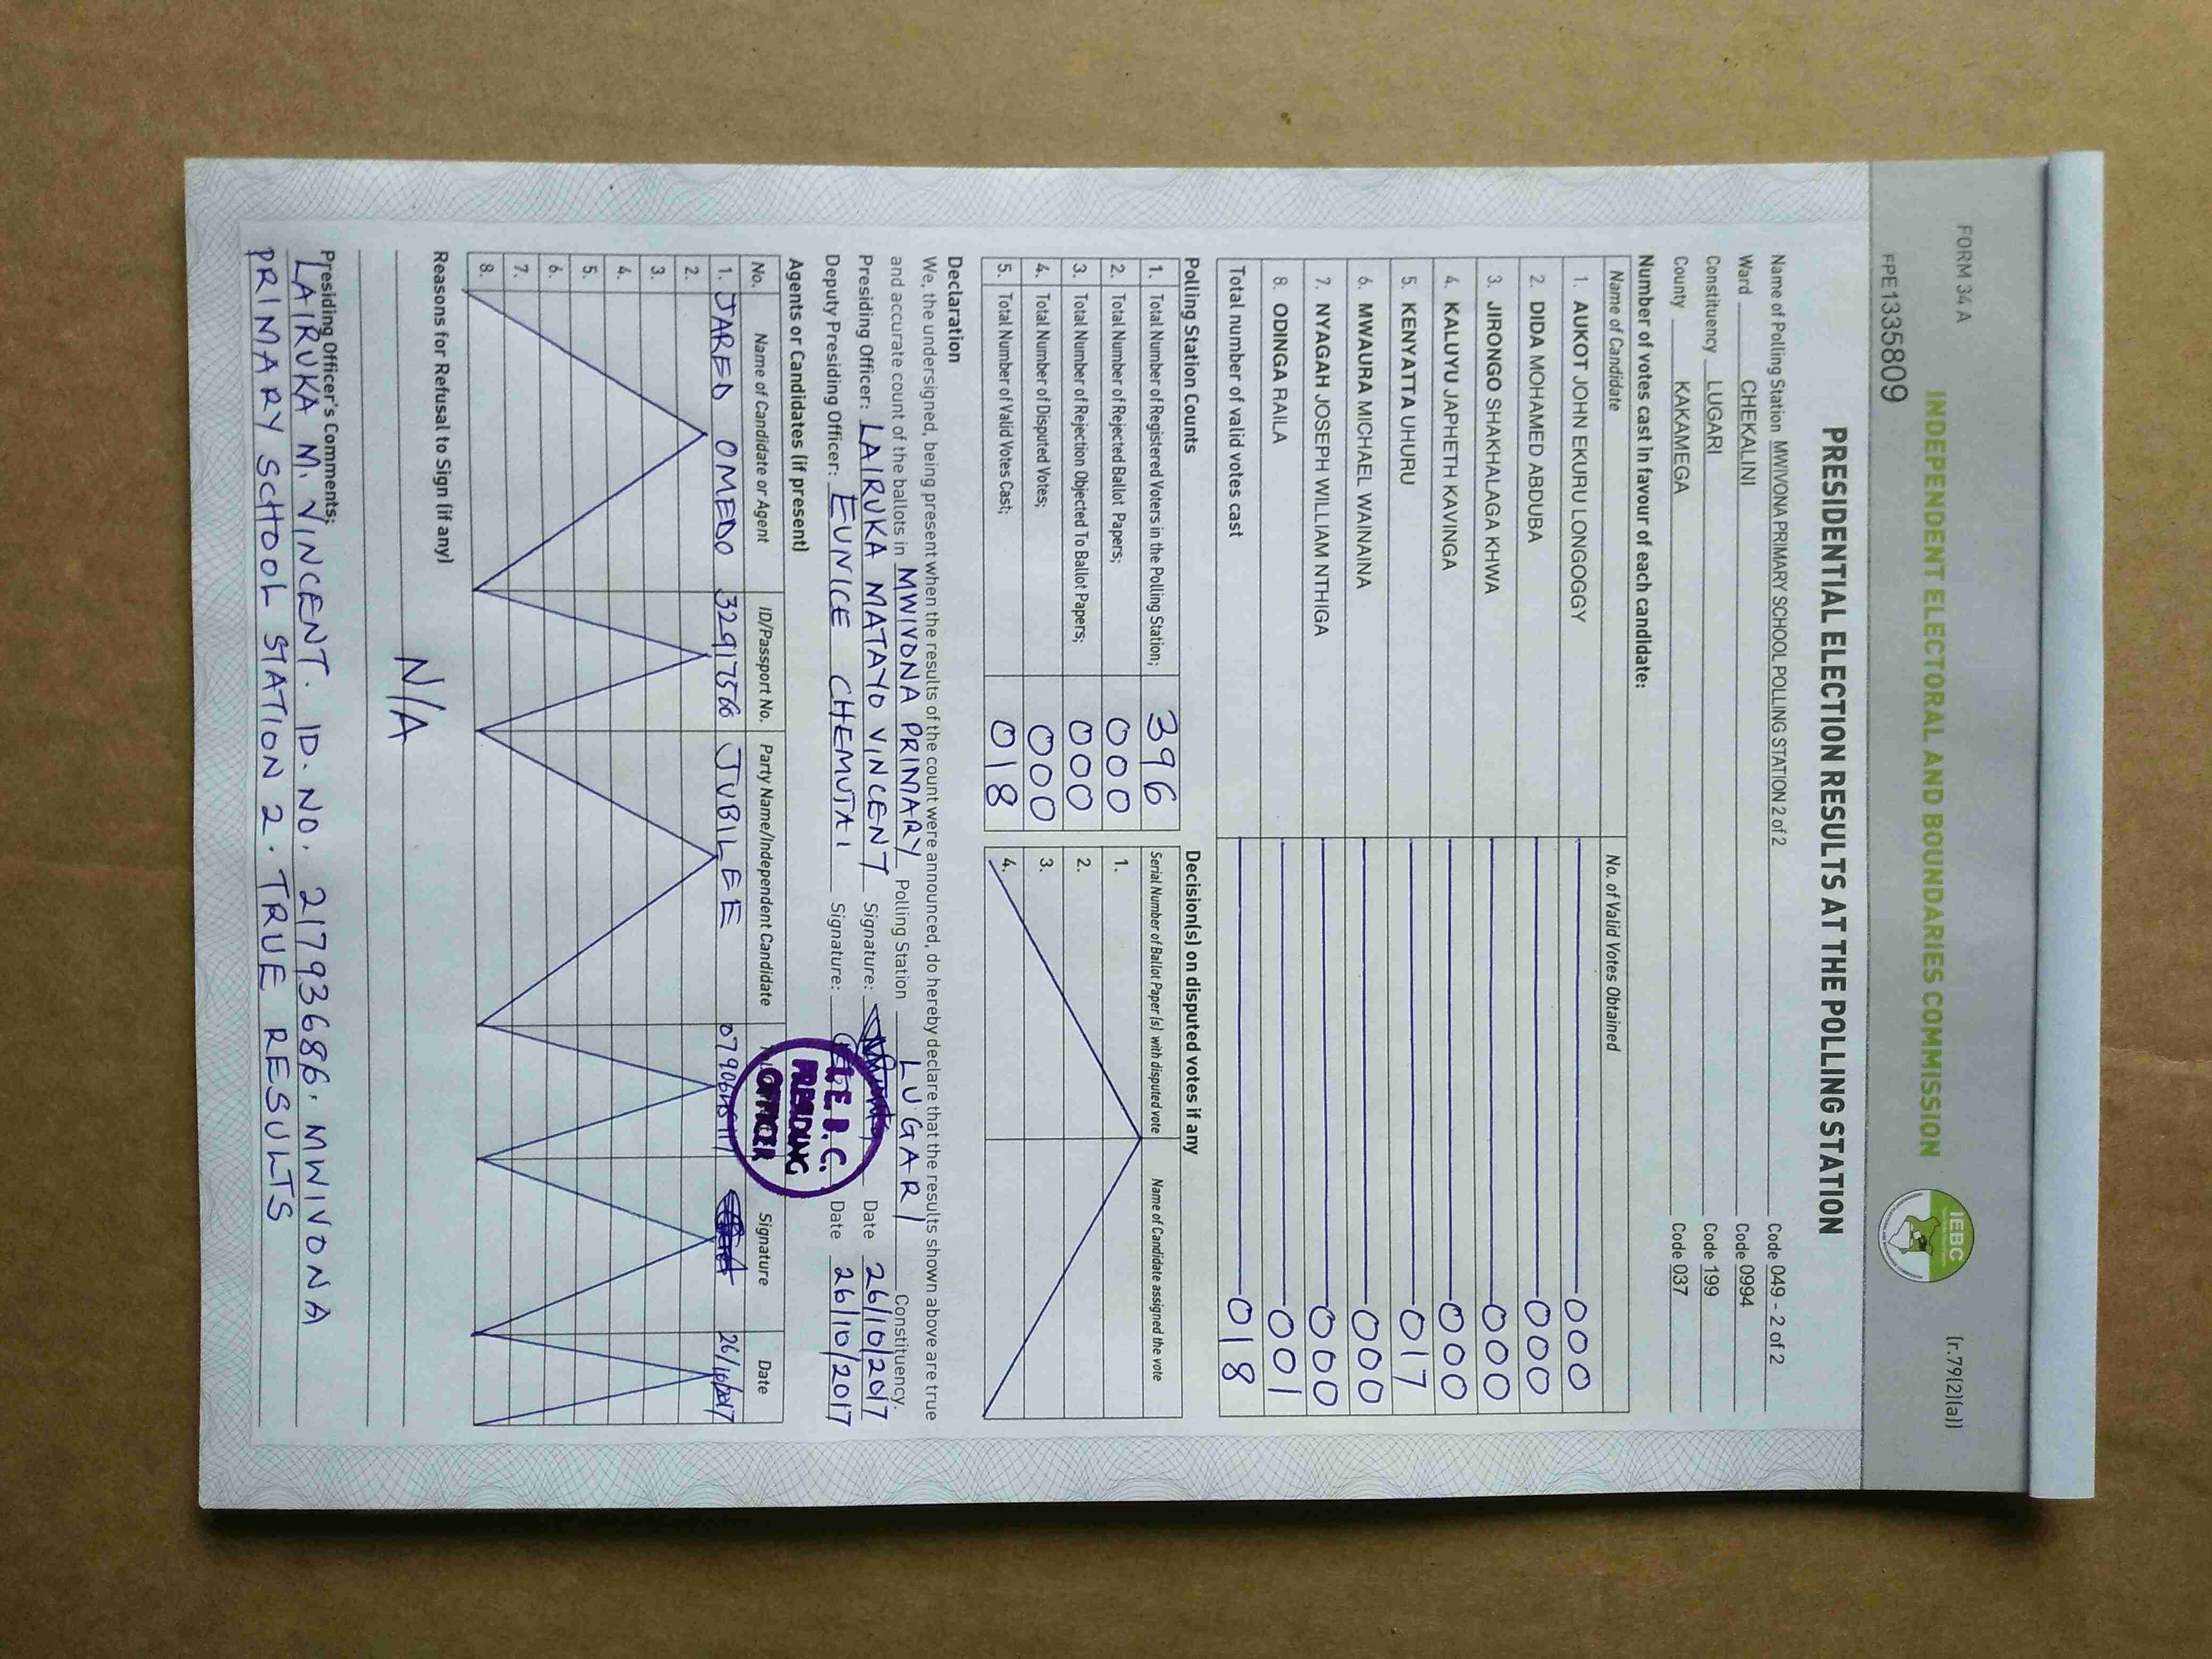 FORM 34 A
(r.79(2)(a))
INDEPENDENT ELECTORAL AND BOUNDARIES COMMISSION
IEBC
FPE1335809
PRESIDENTIAL ELECTION RESULTS AT THE POLLING STATION
Name of Polling Station MWIVONA PRIMARY SCHOOL POLLING STATION 2 of 2 Code 049 - 2 of 2
Ward CHEKALINI Code 0994
Constituency LUGARI Code 199
County KAKAMEGA Code 037
Number of votes cast in favour of each candidate:
Name of Candidate No. of Valid Votes Obtained
1. AUKOT JOHN EKURU LONGOGGY 000
2. DIDA MOHAMED ABDUBA 000
3. JIRONGO SHAKHALAGA KHWA 000
4. KALUYU JAPHETH KAVINGA 000
5. KENYATTA UHURU 017
6. MWAURA MICHAEL WAINAINA 000
7. NYAGAH JOSEPH WILLIAM NTHIGA 000
8. ODINGA RAILA 001
Total number of valid votes cast 018
Polling Station Counts
1. Total Number of Registered Voters in the Polling Station; 396
2. Total Number of Rejected Ballot Papers; 000
3. Total Number of Rejection Objected To Ballot Papers; 000
4. Total Number of Disputed Votes; 000
5. Total Number of Valid Votes Cast; 018
Decision(s) on disputed votes if any
Serial Number of Ballot Paper (s) with disputed vote Name of Candidate assigned the vote
1.
2.
3.
4.
Declaration
We, the undersigned, being present when the results of the count were announced, do hereby declare that the results shown above are true
and accurate count of the ballots in MWIVONA PRIMARY Polling Station LUGARI Constituency.
Presiding Officer: LAIRUKA MATAYO VINCENT Signature: Date 26/10/2017
Deputy Presiding Officer: EUNICE CHEMUTAI Signature: Date 26/10/2017
I.E.B.C.
PRESIDING
OFFICER
Agents or Candidates (if present)
No. Name of Candidate or Agent ID/Passport No. Party Name/Independent Candidate Signature Date
1. JARED OMEDO 32917566 JUBILEE 26/10/2017
2.
3.
4.
5.
6.
7.
8.
Reasons for Refusal to Sign (if any)
N/A
Presiding Officer's Comments;
LAIRUKA M. VINCENT. ID. NO. 21793686. MWIVONA
PRIMARY SCHOOL STATION 2. TRUE RESULTS